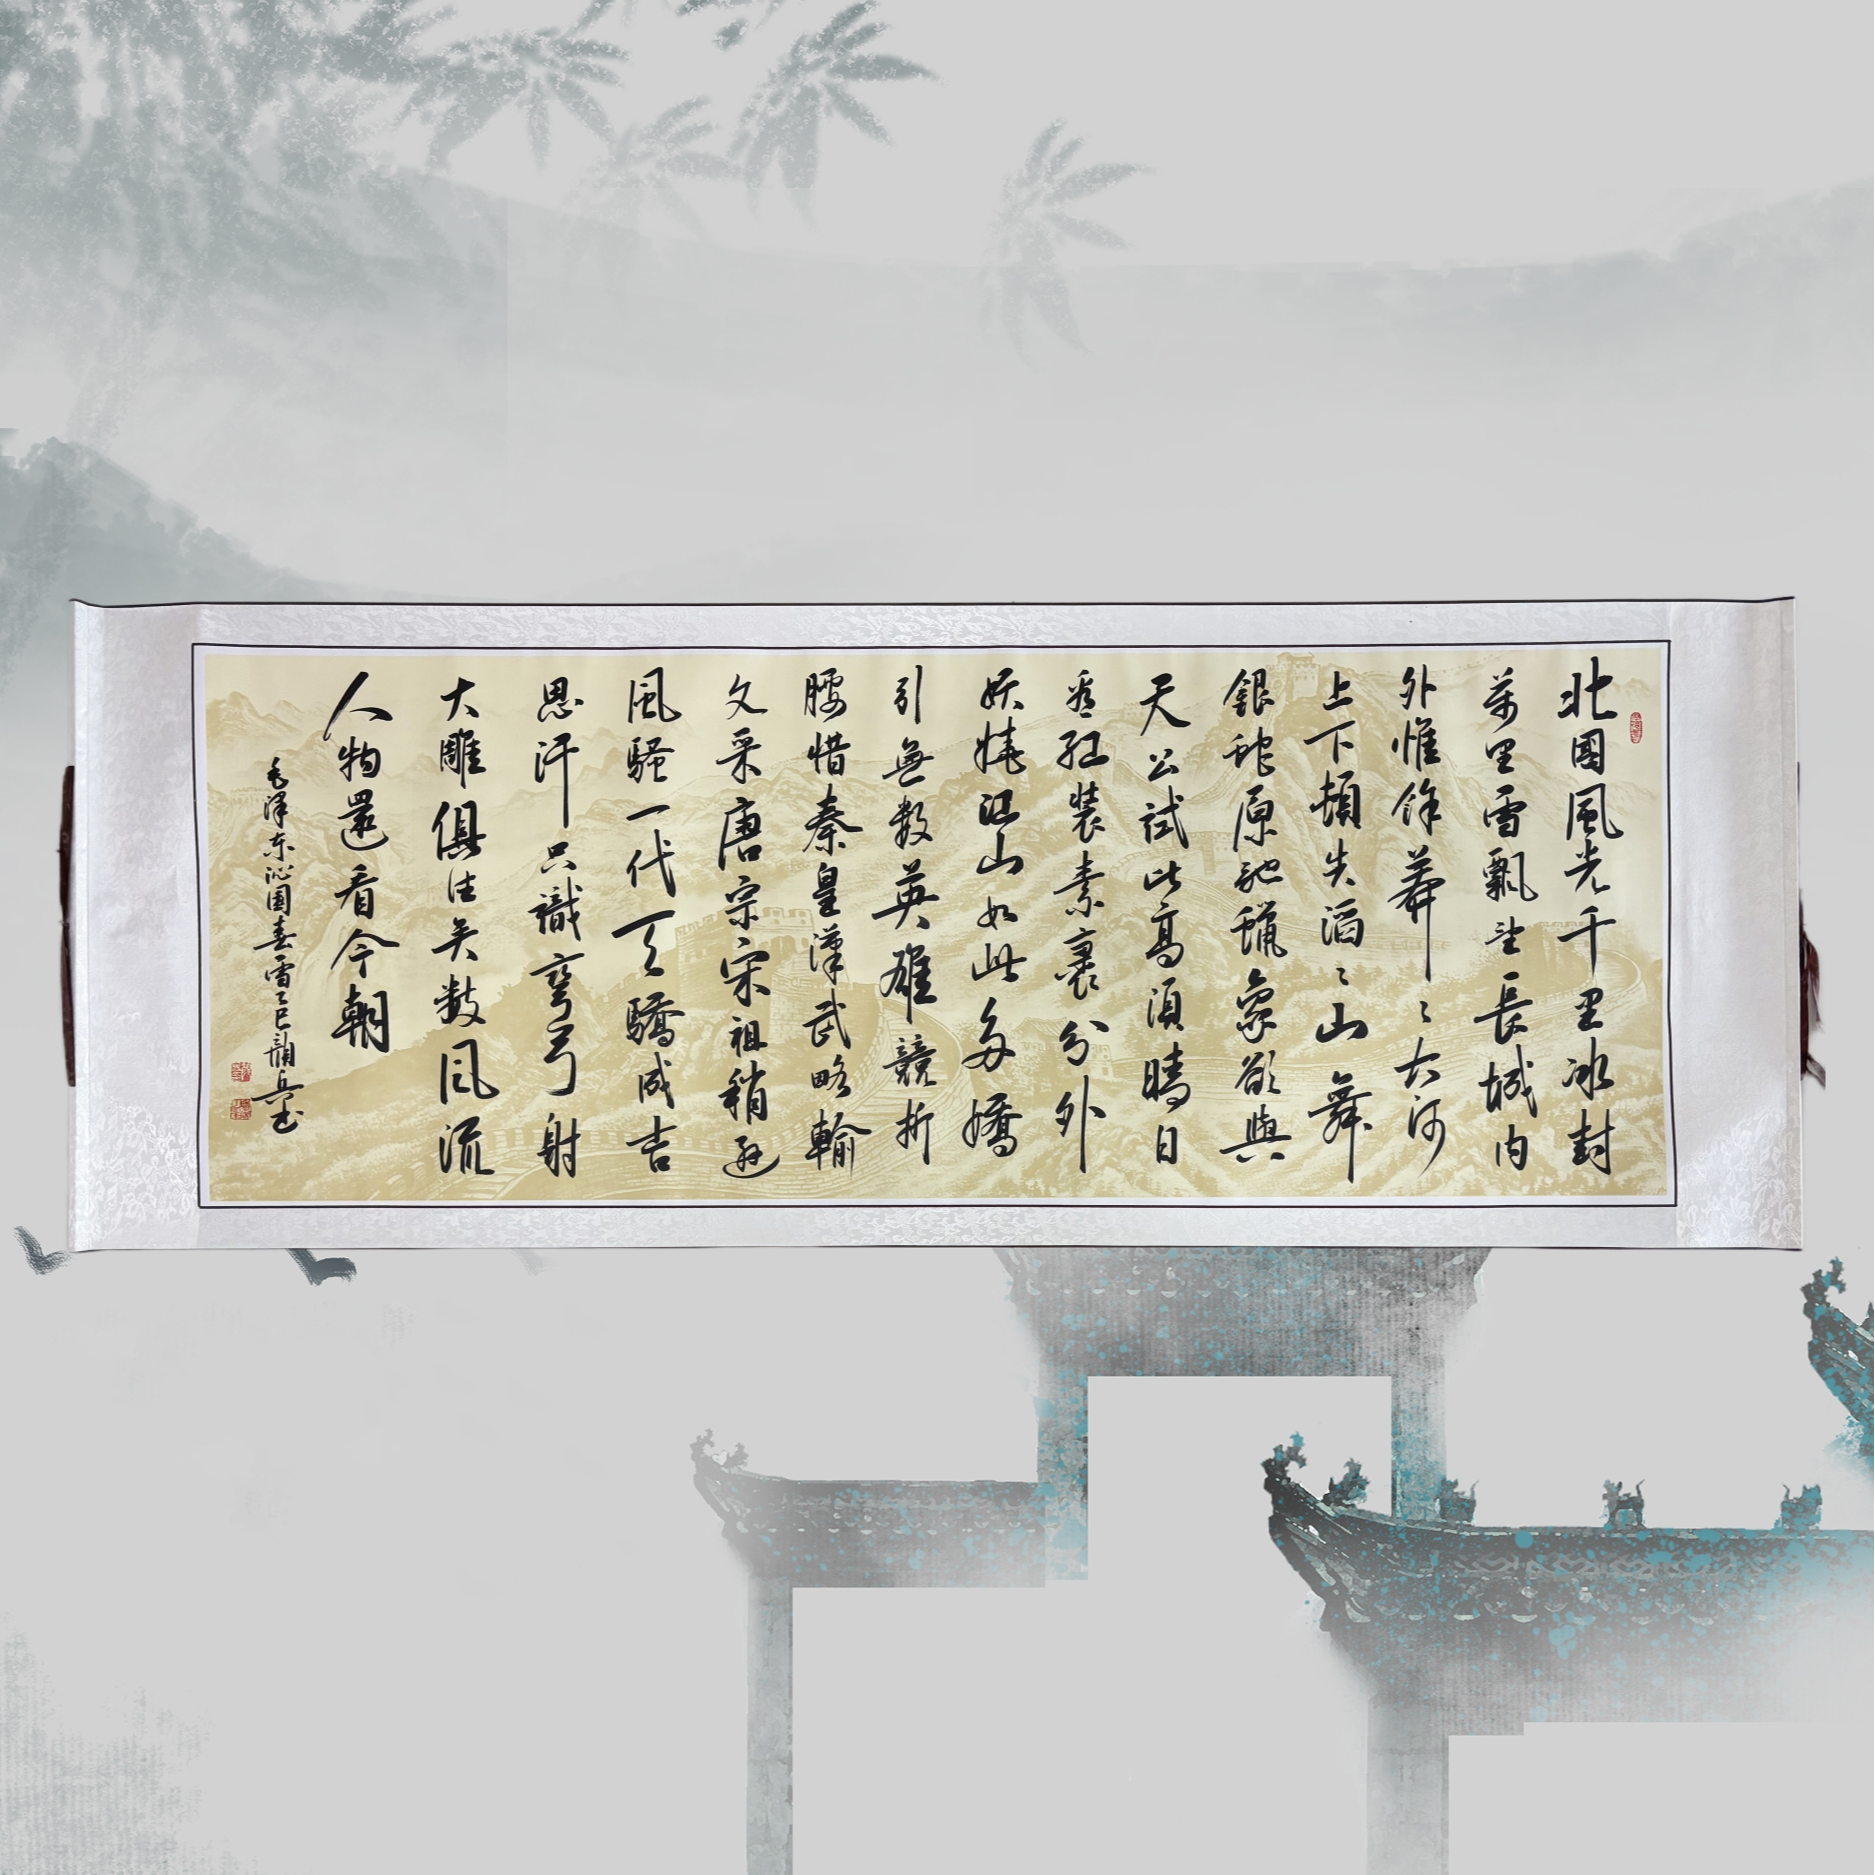 北國風光千里冰封
萬里雪飄望長城内
外惟餘莽〻大河
上下頓失滔〻山舞
銀蛇原馳蠟象欲與
天公試比高須晴日
看紅裝素裹分外
妖嬈江山如此多嬌
引無数英雄競折
腰惜秦皇漢武略輸
文采唐宗宋祖稍遜
風騷一代天驕成吉
思汗只識彎弓射
大雕俱往矣数风流
人物還看今朝
毛泽东沁園春雪乙巳兵书